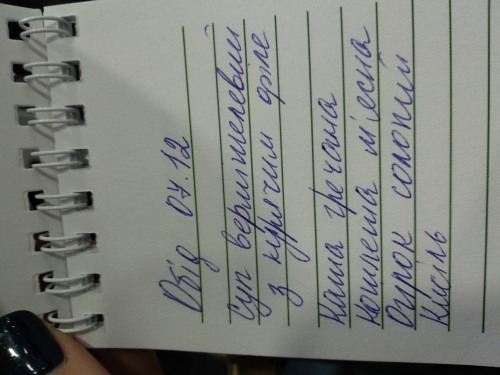 Обід 07.12
Суп вермишелевий
з курячим філе
Каша гречана
Котлета м'ясна
Огірок солоний
Кисіль